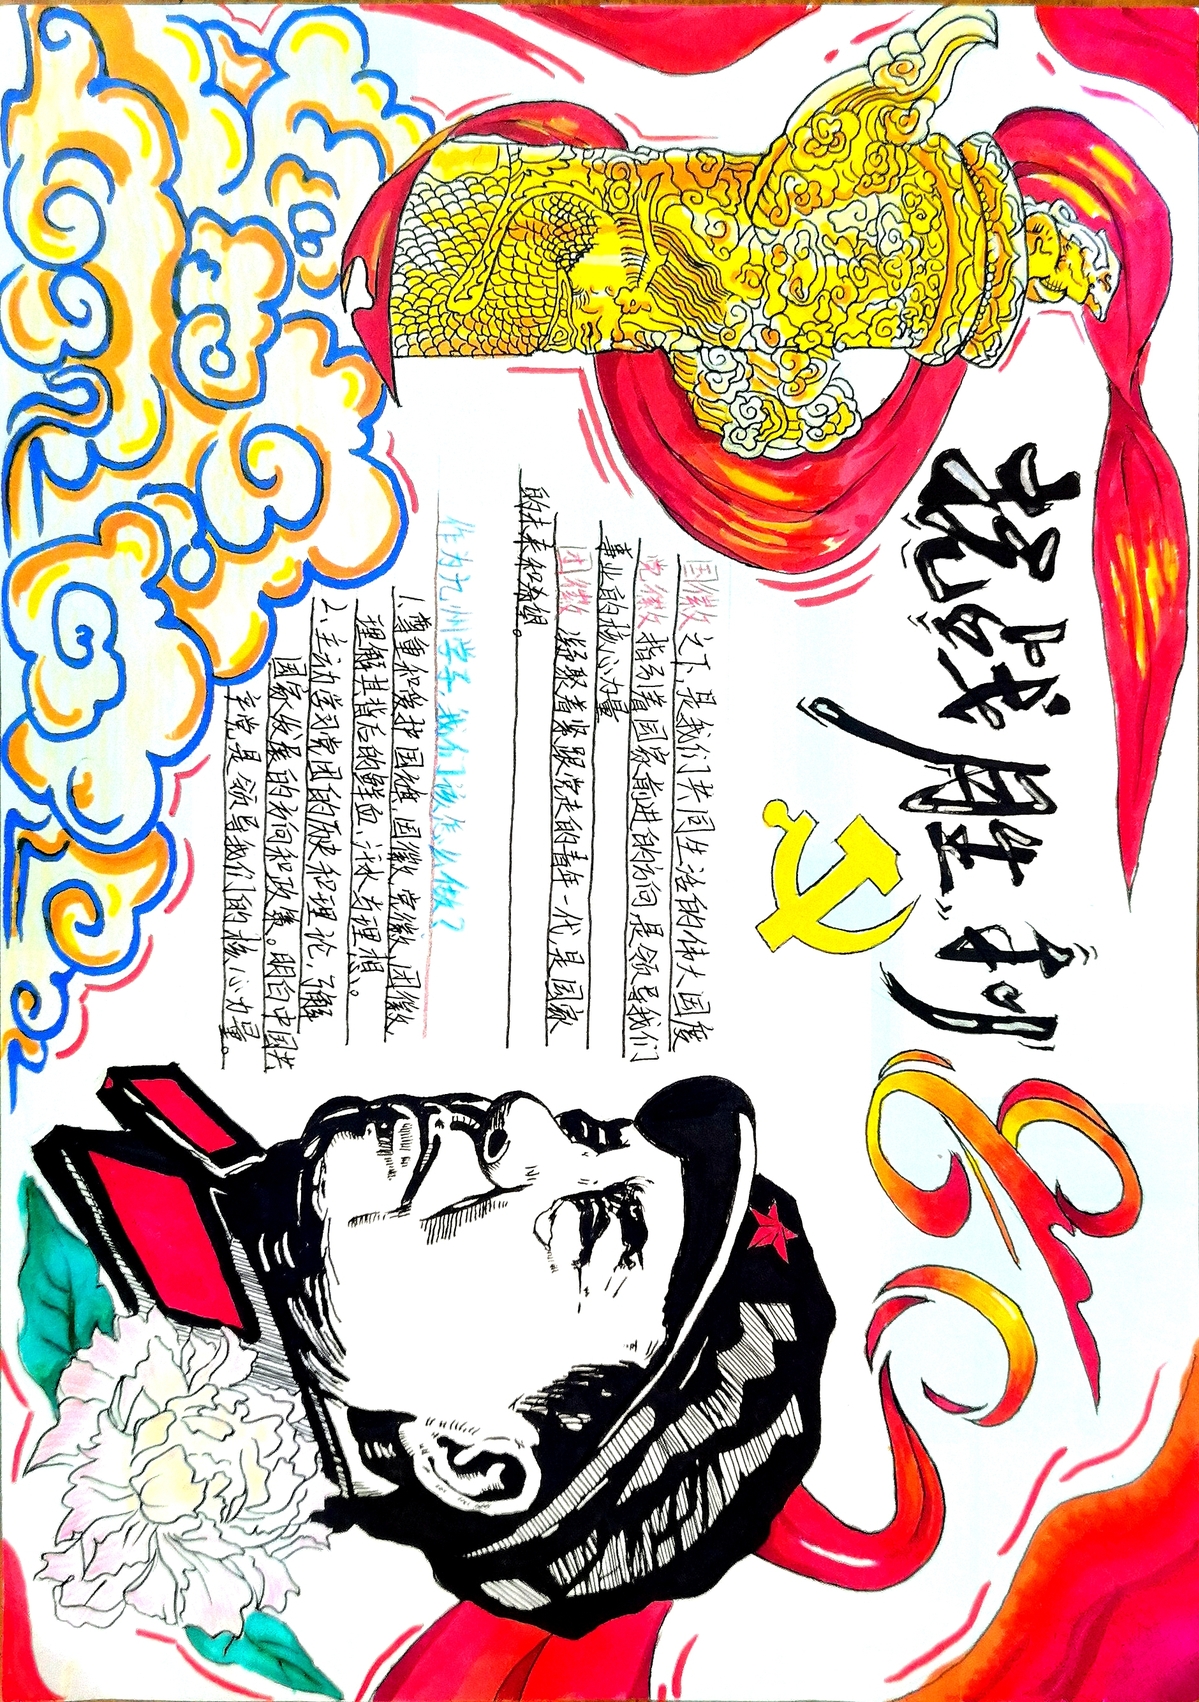 抗战胜利
80
国徽之下,是我们共同生活的伟大国度
党徽指引着国家前进的方向,是领导我们
事业的核心力量
团徽凝聚着紧跟党走的青年一代,是国家
的未来和希望。
作为九州学子,我们该怎么做?
1、尊重和爱护国旗、国徽、党徽、团徽
理解其背后的鲜血、汗水与理想。
2、主动学习党团的历史和理论,了解
国家发展的方向和政策。明白中国共
产党是领导我们的核心力量。